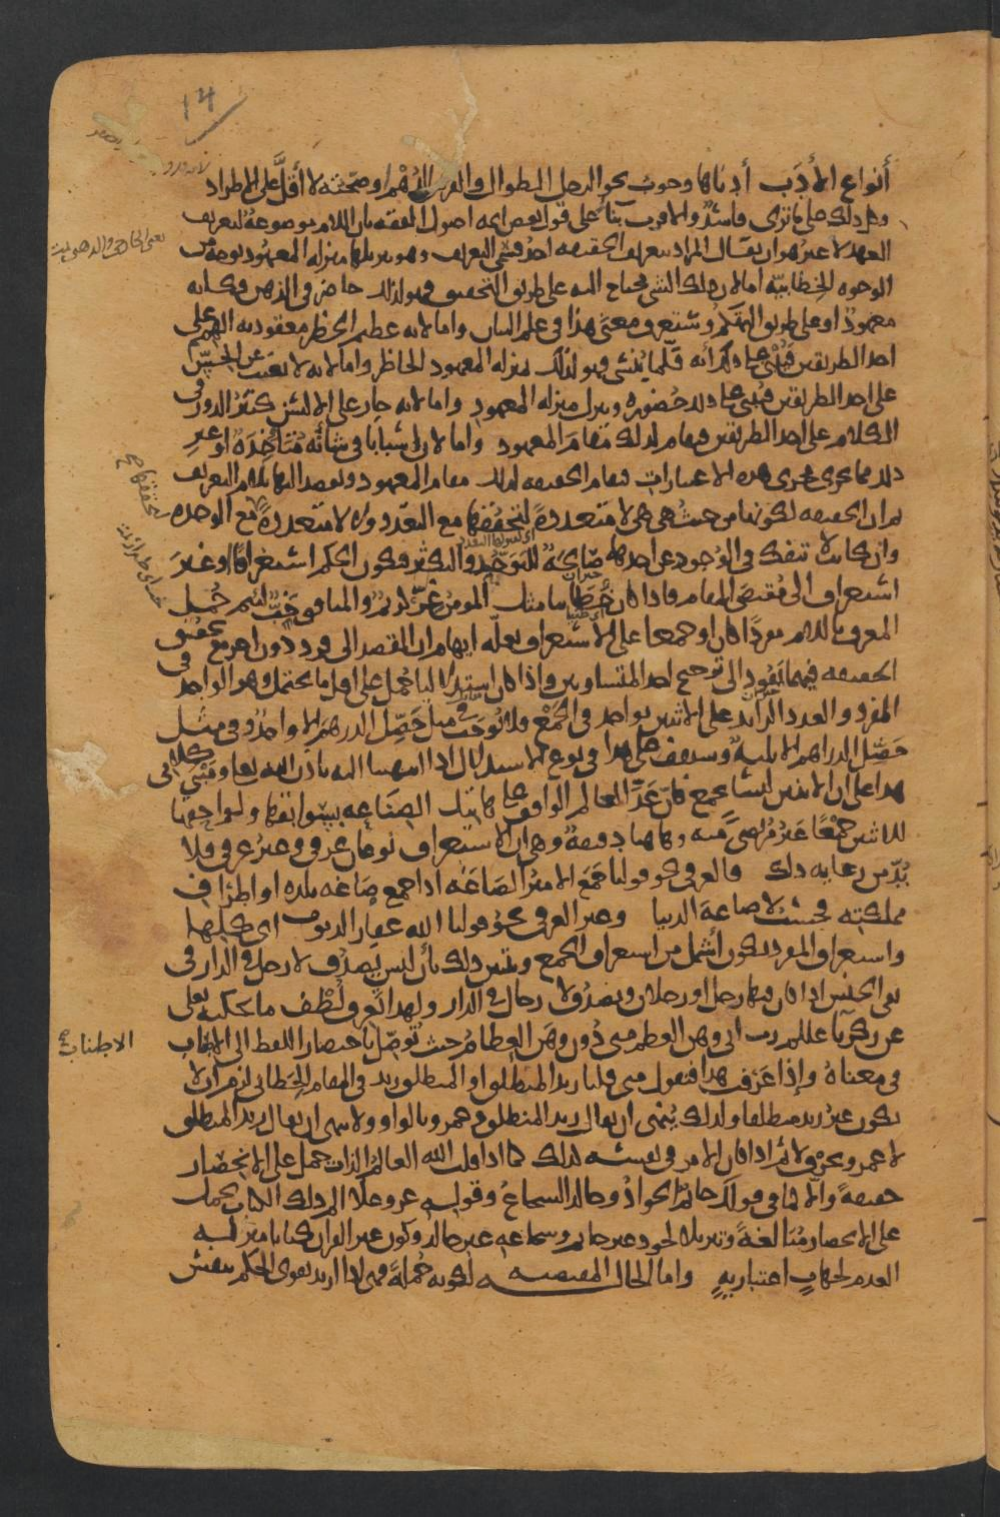 14
أنواع الأدب أدناها وجوب نحو الرجل الطوال والفرس الدهم او صحته لا أقل على الاطراد
وكل ذلك على ما ترى فاسد والاقرب بناء على قول بعض ايمه اصول الفقه بان اللام موضوعة لتعريف
العهد لا غير هو ان يقال المراد بتعريف الحقيقه احد قسمي التعريف وهو تنزيلها منزله المعهود بوجه من
الوجوه الخطابية اما لان ذلك الشي محتاج اليه على طريق التحقيق فهو لذلك حاضر في الذهن فكانه
معهود او على طريق التهكم وستعرف معنى هذا في علم البيان واما لانه عظيم الخطر معقود به الهمم على
احد الطريقين فيبنى على ذلك أنه قلما ينسى فهو لذلك بمنزله المعهود الحاضر واما لانه لا يغيب عن الحس
على احد الطريقين فيبنى على ذلك حضوره وينزل منزله المعهود واما لانه جار على الالسن كثير الدور في
الكلام على احد الطريقين فيقام لذلك مقام المعهود واما لان اسبابا في شأنه متآخذة او غير
ذلك مما يجرى مجرى هذه الاعتبارات فيقام الحقيقه لذلك مقام المعهود ويقصد اليها بلام التعريف
ثم ان الحقيقه لكونها من حيث هي هي لا متعددة لتحققها مع التوحد ولا لا متعددة لتحققها مع الوحده
وان كانت لا تنفك في الوجود عن احدهما صالحة للتوحد والتكثر فيكون الحكم استغراقا او غير
استغراق الى مقتضى المقام فاذا كان خطابيا مثل المومن غر كريم والمنافق خب لئيم حمل
المعرف باللام مفردا كان او جمعا على الاستغراق بعلة ايهام ان القصد الى فرد دون اخر مع تحقق
الحقيقه فيهما يعود الى ترجيح احد المتساويين واذا كان استدلاليا حمل على اقل ما يحتمل وهو الواحد في
المفرد والعدد الزائد على الاثنين بواحد في الجمع فلا يوجب في مثل حصل الدرهم الا واحد وفي مثل
حصل الدراهم الا ثلثه وستقف على هذا في نوع الاستدلال اذا انتهينا اليه باذن الله تعالى ومبنى كلامي
هذا على ان الاثنين ليسا بجمع فان عد العالم الواقف على هاتيك الصناعه بينواتها ولواحقها
للاثنين جمعا غير مرضي منه وهاهنا دقيقة وهي ان الاستغراق نوعان عرفي وغير عرفي فلا
بد من رعايه ذلك فالعرفي نحو قولنا جمع الامير الصاغة اذا جمع صاغه بلده او اطراف
مملكته فحسب لا صاغة الدنيا وغير العرفي نحو قولنا الله غفار الذنوب اي كلها
واستغراق المفرد يكون أشمل من استغراق الجمع ويتبين ذلك بأن ليس يصدق لا رجل في الدار في
نفي الجنس اذا كان فيها رجل او رجلان ويصدق لا رجال في الدار ولهذا تعرف لطف ما يحكيه تعالى
عن زكريا عليلم رب اني وهن العظم مني دون وهن العظام حيث توصل باختصار اللفظ الى الاطناب
في معناه وإذا عرفت هذا فنقول متى قلنا زيد المنطلق او المنطلق زيد في المقام الخطابي لزم ان لا
يكون غير زيد منطلقا ولذلك ينهى ان يقال زيد المنطلق وعمرو بالواو ولا ينهى ان يقال زيد المنطلق
لا عمرو بحرف لا ثم اذا كان الامر في نفسه كذلك كما اذا قلت الله العالم الذات حمل على الانحصار
حقيقة والا كما في قولك حاتم الجواد وخالد الشجاع وقوله عز وعلا الم ذلك الكتاب حمل
على الانحصار مبالغة وتنزيلا لجود غير حاتم وشجاعه غير خالد وكون غير القران كتابا منزله
العدم لجهات اعتباريه واما الحال المقتضيه لكونه جملة فهي اذا اريد تقوى الحكم بنفس
لتحققها صح
الاطناب صح